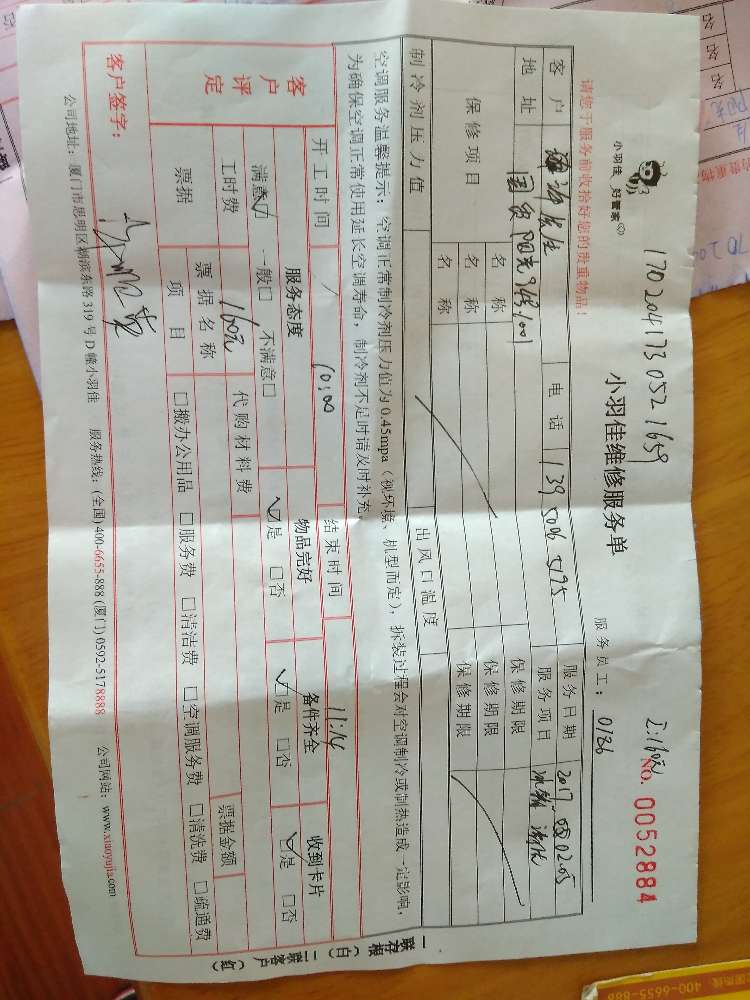 小羽佳 好管家
1702041730521659
工:160元
NO. 0052884
小羽佳维修服务单
服务员工: 0126
请您于服务前收拾好您的贵重物品!
客户 电话 139 5016 5195 服务日期 2017 02.05
地址 国贸阳光 服务项目
保修项目 名称 保修期限
名称 保修期限
名称 保修期限
制冷剂压力值 出风口温度
空调服务温馨提示: 空调正常制冷剂压力值为0.45mpa (视环境、机型而定), 拆装过程会对空调制冷或制热造成一定影响,
为确保空调正常使用延长空调寿命, 制冷剂不足时请及时补充。
开工时间 10:00 结束时间 11:14
客户评定 服务态度 物品完好 备件齐全 收到卡片
满意☑ 一般□ 不满意□ ☑是 □否 ☑是 □否 ☑是 □否
工时费 160元 代购材料费
票据 票据名称 票据金额
项目 □搬办公用品 □服务费 □清洁费 □空调服务费 □清洗费 □疏通费
客户签字:
公司地址: 厦门市思明区湖滨东路 319 号 D 幢小羽佳 服务热线: (全国) 400-6655-888 (厦门) 0592-5178888 公司网站: www.xiaoyujia.com
一联存根(白) 二联客户(红)
400-6655-888